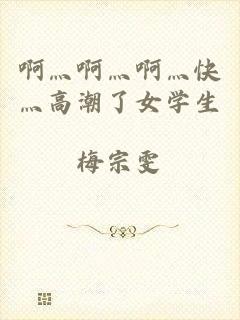 啊灬啊灬啊灬快
灬高潮了女学生
梅宗雯